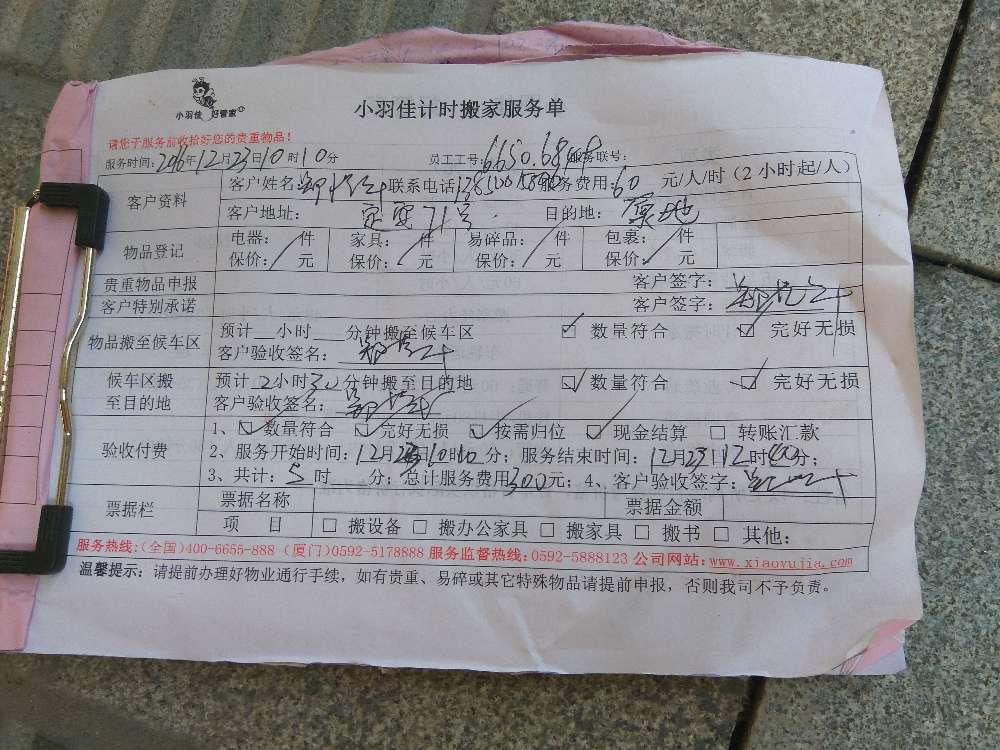 小羽佳 好管家
小羽佳计时搬家服务单
请您于服务前收拾好您的贵重物品!
服务时间:2016年12月23日10时10分 员工工号:6650.68 服务联号:
客户资料
客户姓名: 联系电话 服务费用:60 元/人/时(2小时起/人)
客户地址: 71号 目的地: 原地
物品登记
电器: / 件 家具: / 件 易碎品: / 件 包裹: / 件
保价: / 元 保价: / 元 保价: / 元 保价: / 元
贵重物品申报 客户签字:
客户特别承诺 客户签字:
物品搬至候车区
预计__小时__分钟搬至候车区 ☑ 数量符合 ☑ 完好无损
客户验收签名:
候车区搬至目的地
预计2小时30分钟搬至目的地 ☑ 数量符合 ☑ 完好无损
客户验收签名:
验收付费
1、☑ 数量符合 ☑ 完好无损 ☑ 按需归位 ☑ 现金结算 □ 转账汇款
2、服务开始时间:12月23日10时10分;服务结束时间:12月23日12时40分;
3、共计:5时 分;总计服务费用300元;4、客户验收签字:
票据栏
票据名称 票据金额
项 目 □ 搬设备 □ 搬办公家具 □ 搬家具 □ 搬书 □ 其他:
服务热线:(全国)400-6655-888 (厦门)0592-5178888 服务监督热线:0592-5888123 公司网站:www.xiaoyujia.com
温馨提示:请提前办理好物业通行手续,如有贵重、易碎或其它特殊物品请提前申报,否则我司不予负责。